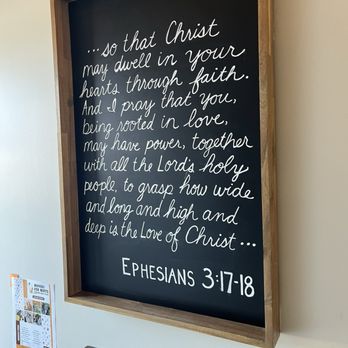 ...so that Christ
may dwell in your
hearts through faith.
And I pray that you,
being rooted in love,
may have power, together
with all the Lord's holy
people, to grasp how wide
and long and high and
deep is the Love of Christ...
EPHESIANS 3:17-18